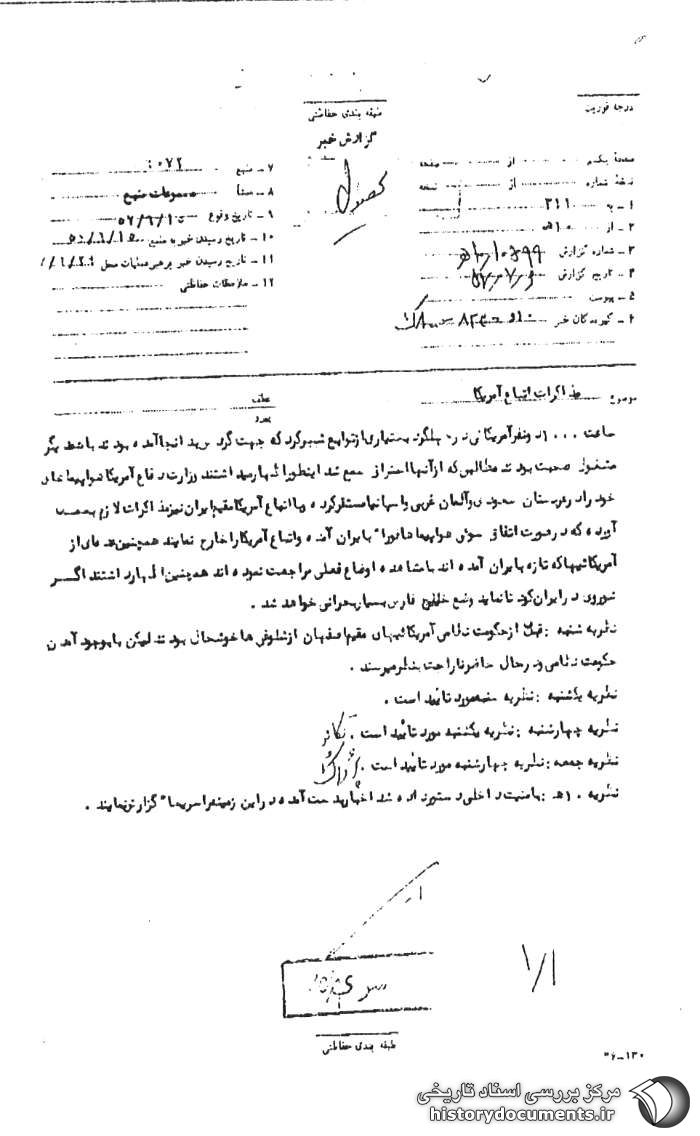 درجه فوریت
طبقه بندی حفاظتی
گزارش خبر
صفحهٔ یکم از صفحه
نسخهٔ شماره از نسخه
۱ - به ۳۱۱
۲ - از ۱۰ه
۳ - شماره گزارش
۴ - تاریخ گزارش
۵ - پیوست
۶ - گیرندگان خبر
۷ - منبع ۰۷۲
۸ - منشأ مسموعات منبع
۹ - تاریخ وقوع
۱۰ - تاریخ رسیدن خبر به منبع
۱۱ - تاریخ رسیدن خبر برهبر عملیات محل
۱۲ - ملاحظات حفاظتی
موضوع مذاکرات اتباع آمریکا
عطف
پیرو
ساعت ۱۰۰۰ دونفر آمریکائی در از توابع شهرکرد که جهت گردش بدانجا آمده بودند با یکدیگر
مشغول صحبت بودند مطالبی که از آنها احتراز سمع شد اینطور اظهار میداشتند وزارت دفاع آمریکا هواپیماهای
خود را در عربستان سعودی و آلمان غربی و اسپانیا مستقر کرده و با اتباع آمریکا مقیم ایران نیز مذاکرات لازم بعمل
آورده که در صورت اتفاق سوئی هواپیماها فورا" بایران آمده و اتباع آمریکا را خارج نمایند همچنین عده‌ای از
آمریکائیها که تازه بایران آمده‌اند با مشاهده اوضاع فعلی مراجعت نموده‌اند همچنین اظهار داشتند اگر
شوروی در ایران کودتا نماید وضع خلیج فارس بسیار بحرانی خواهد شد .
نظریه شنبه : قبل از حکومت نظامی آمریکائیهای مقیم اصفهان از شلوغی‌ها خوشحال بودند لیکن با بوجود آمدن
حکومت نظامی در حال حاضر ناراحت بنظر میرسند .
نظریه یکشنبه : نظریه شنبه مورد تائید است .
نظریه چهارشنبه : نظریه یکشنبه مورد تائید است .
نظریه جمعه : نظریه چهارشنبه مورد تائید است .
نظریه ۱۰ه : بامنیت داخلی دستور داده شد اخبار بدست آمده در این زمینه را سریعا" گزارش نمایند .
۱/۱
طبقه بندی حفاظتی
۳۶-۱۳۰
مرکز بررسی اسناد تاریخی
historydocuments.ir